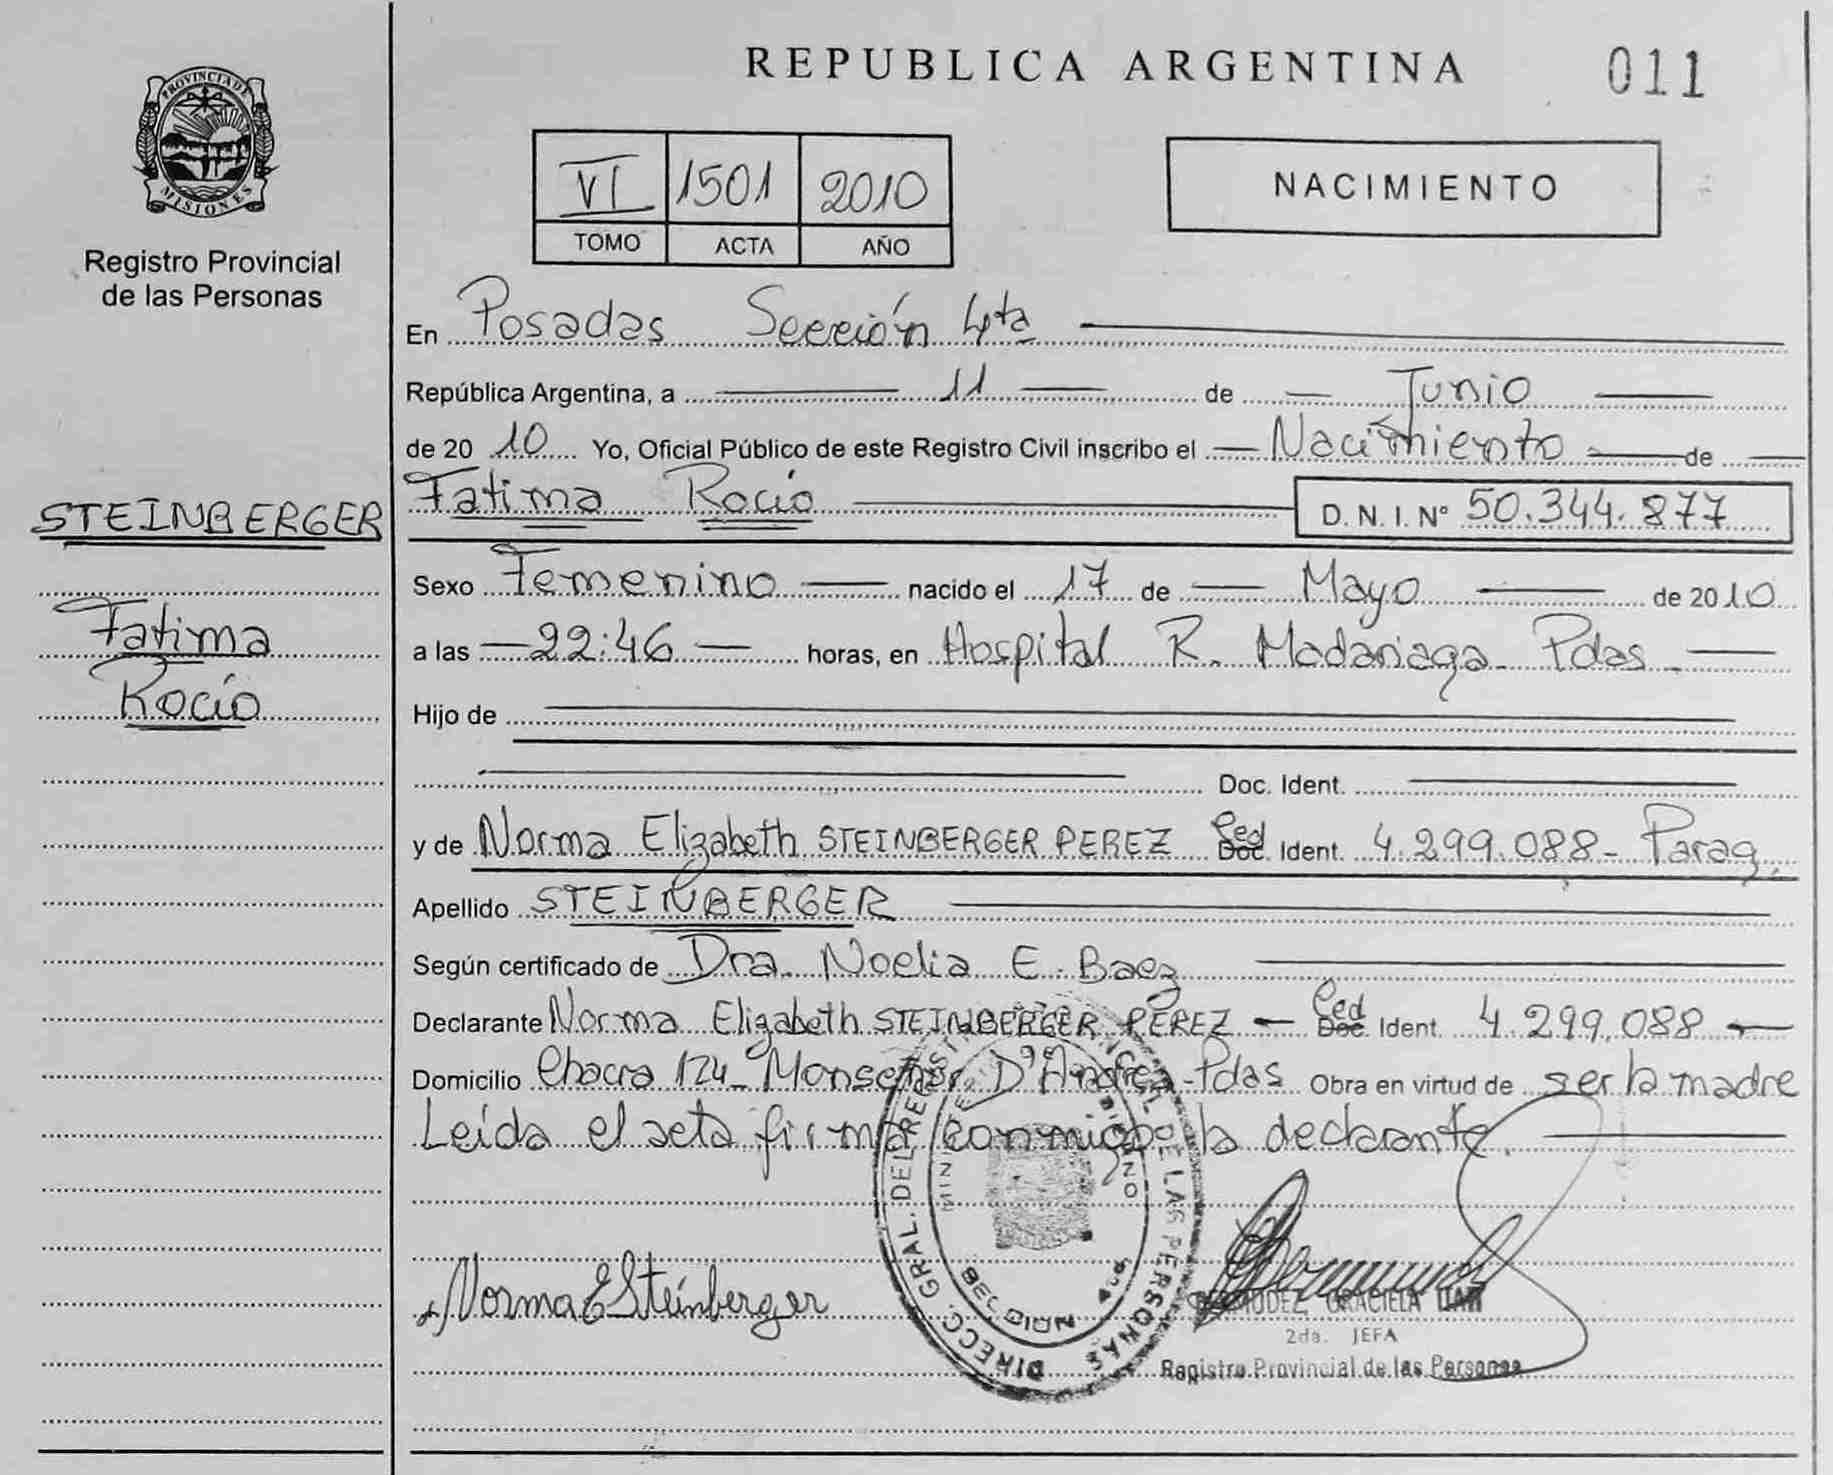 REPUBLICA ARGENTINA 011
PROVINCIA DE
MISIONES
Registro Provincial
de las Personas
VI 1501 2010
TOMO ACTA AÑO
NACIMIENTO
En Posadas Sección 4ta
República Argentina, a 11 de Junio
de 20 10 Yo, Oficial Público de este Registro Civil inscribo el Nacimiento de
STEINBERGER
Fatima Rocío D. N. I. N° 50.344.877
Sexo Femenino nacido el 17 de Mayo de 2010
Fatima
a las 22:46 horas, en Hospital R. Madariaga - Pdas
Rocío
Hijo de
Doc. Ident.
y de Norma Elizabeth STEINBERGER PEREZ Ced Doc. Ident. 4.299.088 - Parag.
Apellido STEINBERGER
Según certificado de Dra. Noelia E. Baez
Declarante Norma Elizabeth STEINBERGER PEREZ - Ced Doc. Ident. 4.299.088
Domicilio Chacra 124 - Monseñor D'Andrea - Pdas Obra en virtud de ser la madre
Leída el acta firma conmigo la declarante.
Norma E Steinberger
DIRECC. GRAL. DEL REGISTRO PROVINCIAL DE LAS PERSONAS
GRACIELA
2da. JEFA
Registro Provincial de las Personas